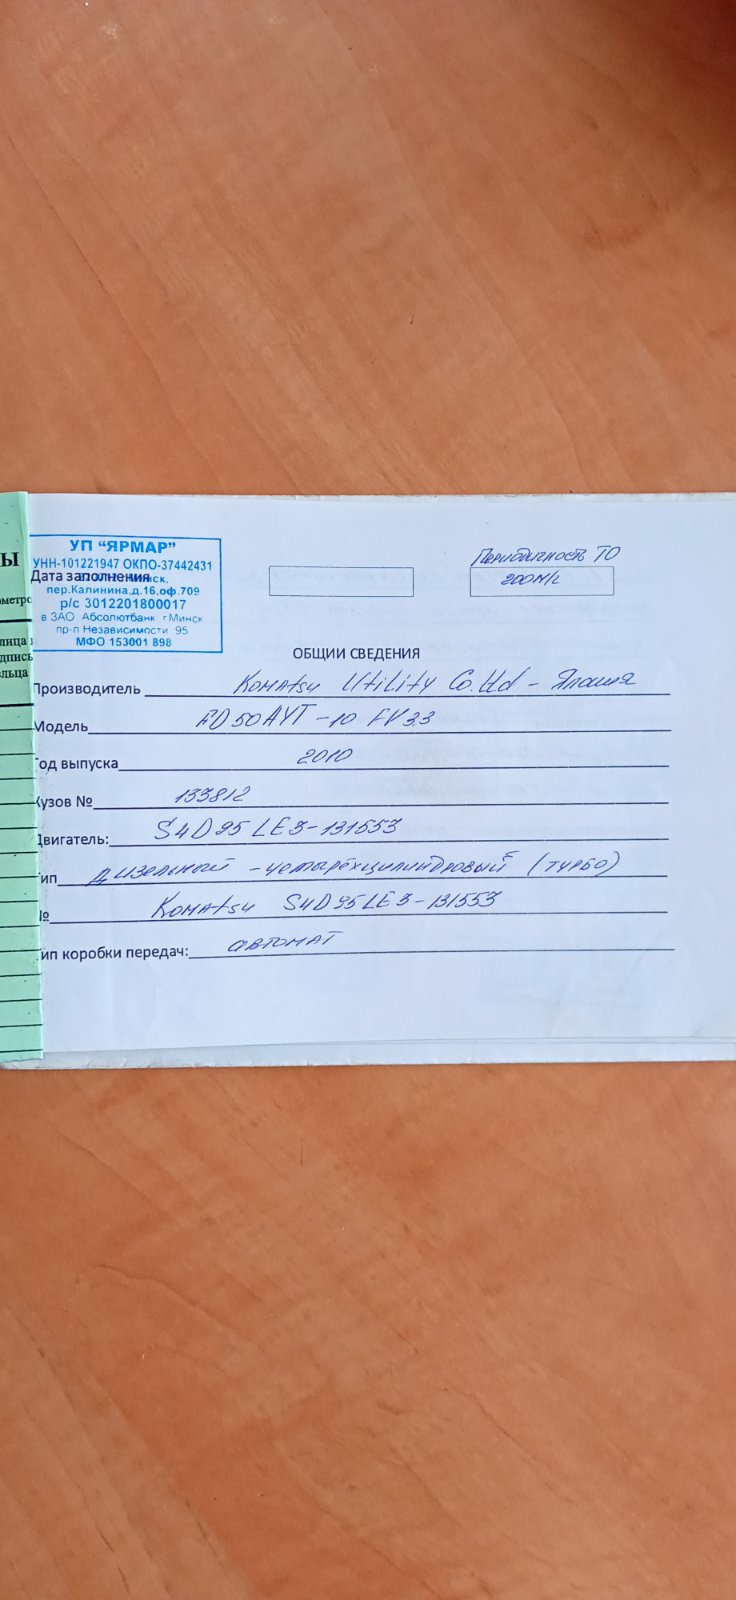 УП “ЯРМАР”
УНН-101221947 ОКПО-37442431
Дата заполнения
пер.Калинина,д.16,оф.709
р/с 3012201800017
в ЗАО Абсолютбанк г Минск
пр-п Независимости 95
МФО 153001 898
Периодичность ТО
200м/ч
ОБЩИИ СВЕДЕНИЯ
Производитель Komatsu Utility Co.Ltd - Япония
Модель FD50AYT-10 FV33
Год выпуска 2010
Кузов № 133812
Двигатель: S4D95LE3-131553
Тип дизельный - четырёхцилиндровый (турбо)
№ Komatsu S4D95LE3-131553
Тип коробки передач: автомат